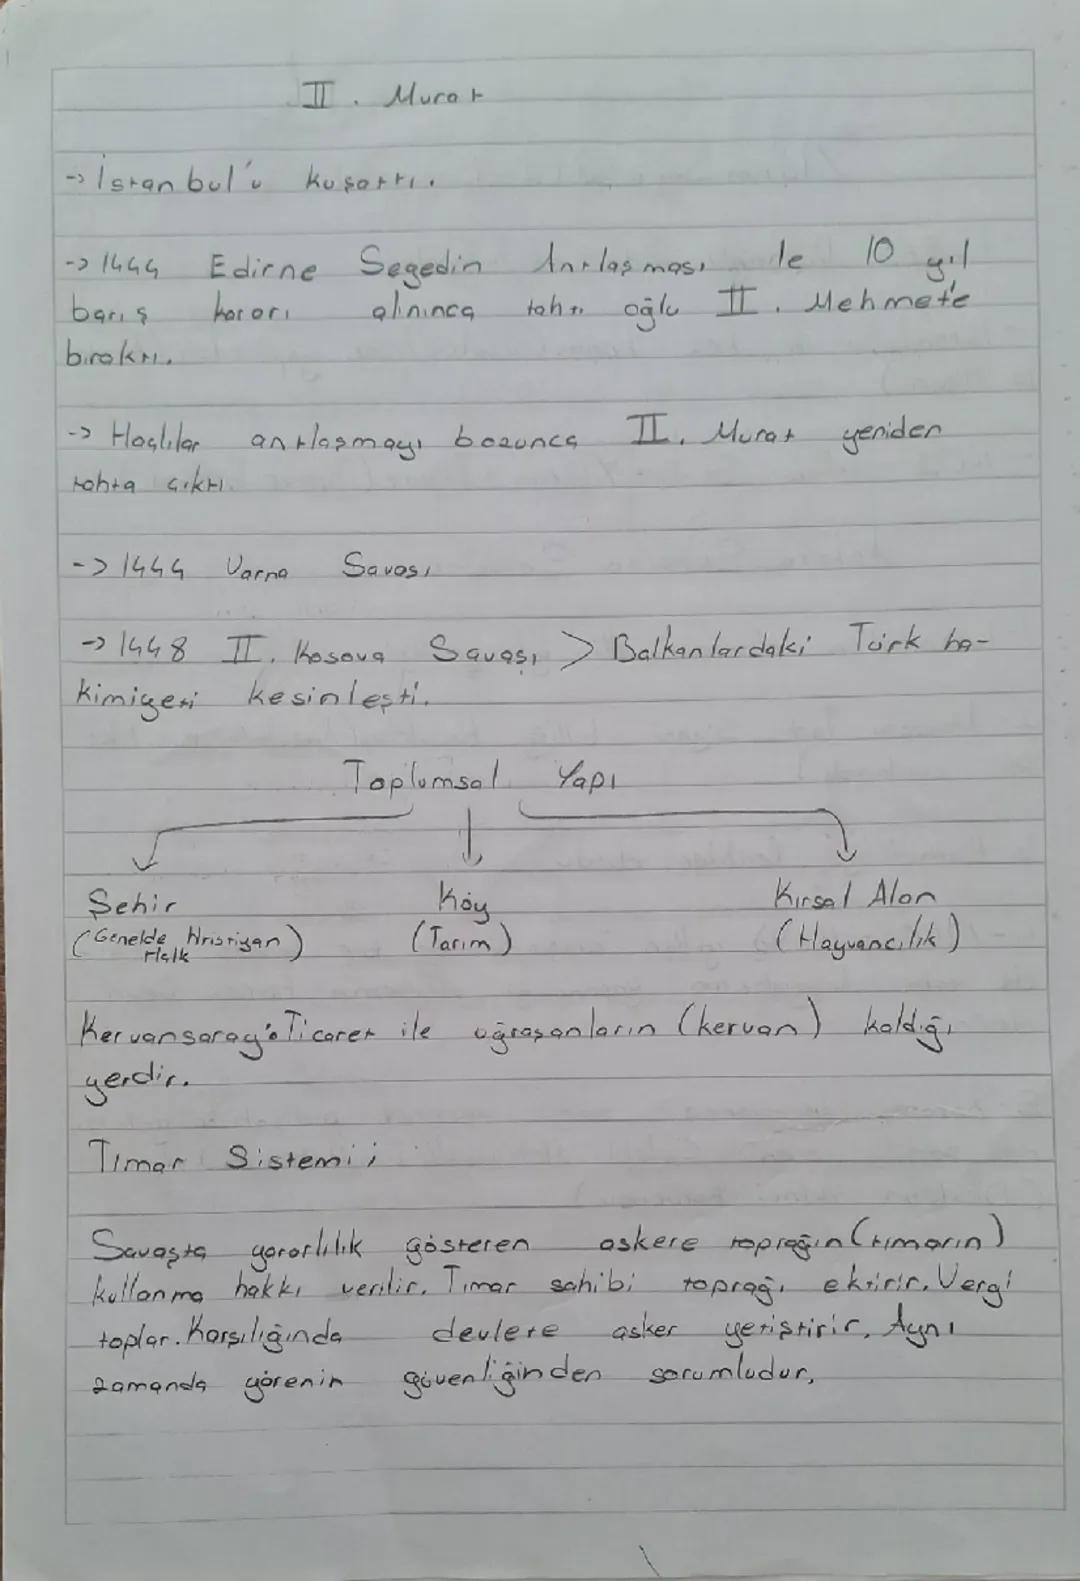 II. Murat
-> İstanbul'u kuşattı.
-> 1444 Edirne Segedin Antlaşması ile 10 yıl
barış kararı alınınca tahtı oğlu II. Mehmet'e
bıraktı.
-> Haçlılar antlaşmayı bozunca II. Murat yeniden
tahta çıktı.
-> 1444 Varna Savaşı
-> 1448 II. Kosova Savaşı > Balkanlardaki Türk ha-
kimiyeti kesinleşti.
Toplumsal Yapı
Şehir Köy Kırsal Alan
(Genelde Hristiyan Halk) (Tarım) (Hayvancılık)
Kervansaray: Ticaret ile uğraşanların (kervan) kaldığı
yerdir.
Tımar Sistemi;
Savaşta yararlılık gösteren askere toprağın (tımarın)
kullanma hakkı verilir. Tımar sahibi toprağı ektirir. Vergi
toplar. Karşılığında devlete asker yetiştirir. Aynı
zamanda yörenin güvenliğinden sorumludur.